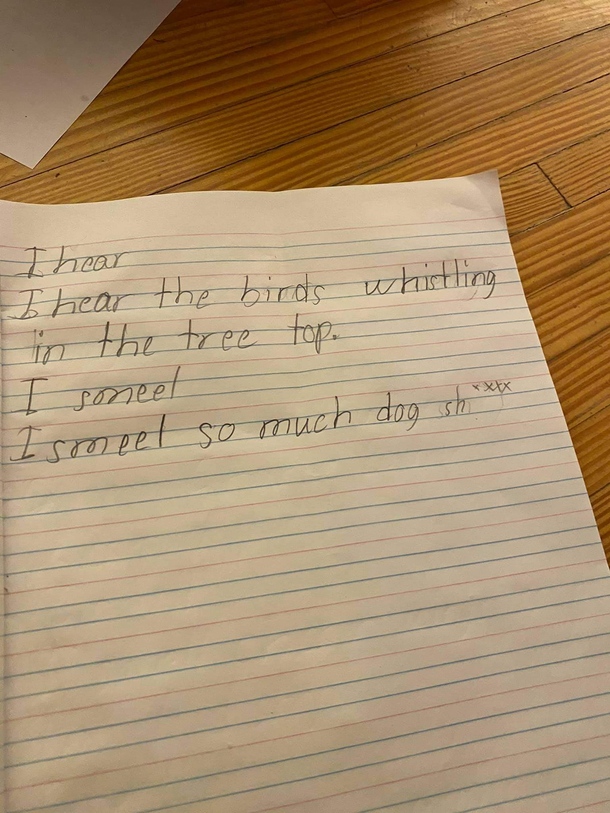 I hear
I hear the birds whistling
in the tree top.
I smeel
I smeel so much dog sh xxxx